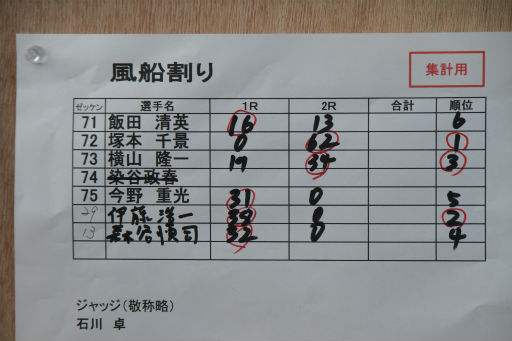 風船割り
集計用
ゼッケン 選手名 1R 2R 合計 順位
71 飯田 清英 16 13 6
72 塚本 千景 0 62 1
73 横山 隆一 19 34 3
74 染谷政春
75 今野 重光 31 0 5
29 伊藤 浩一 39 0 2
13 谷 司 32 0 4
ジャッジ（敬称略）
石川 卓